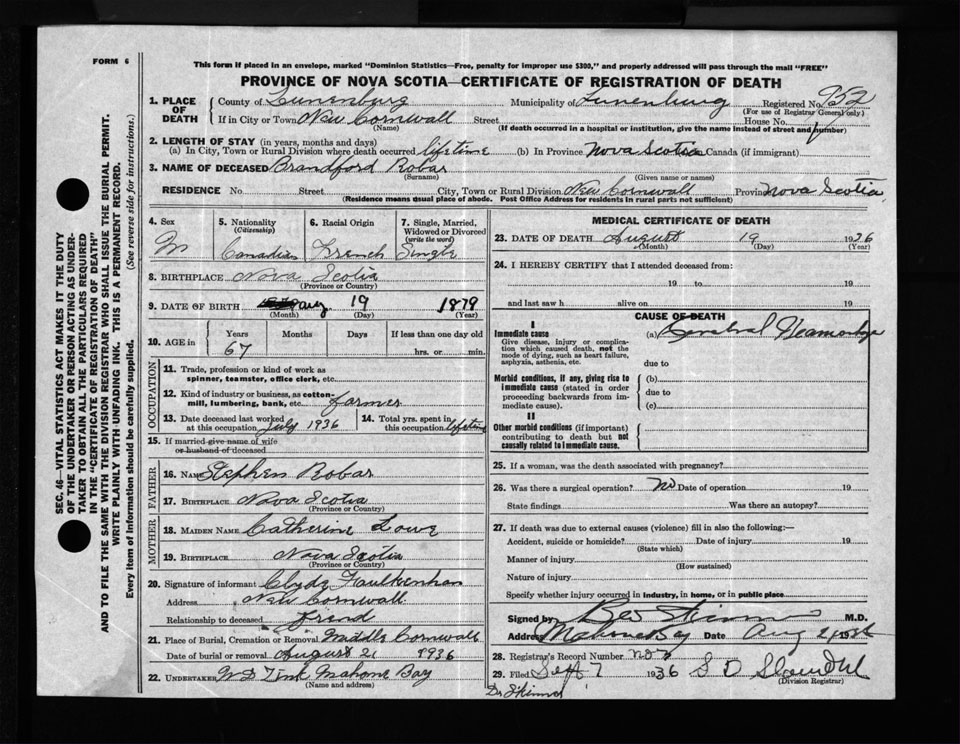 FORM 6
This form if placed in an envelope, marked "Dominion Statistics—Free, penalty for improper use $300," and properly addressed will pass through the mail "FREE"
PROVINCE OF NOVA SCOTIA—CERTIFICATE OF REGISTRATION OF DEATH
1. PLACE OF DEATH County of Lunenburg Municipality of Lunenburg Registered No. 952
(For use of Registrar General only.)
If in City or Town New Cornwall Street House No.
(Name) (If death occurred in a hospital or institution, give the name instead of street and number)
2. LENGTH OF STAY (in years, months and days)
(a) In City, Town or Rural Division where death occurred lifetime (b) In Province Nova Scotia Canada (if immigrant)
3. NAME OF DECEASED Brandford Robar
(Surname) (Given name or names)
RESIDENCE No. Street City, Town or Rural Division New Cornwall Province Nova Scotia
(Residence means usual place of abode. Post Office Address for residents in rural parts not sufficient)
4. Sex M
5. Nationality (Citizenship) Canadian
6. Racial Origin French
7. Single, Married, Widowed or Divorced (write the word) Single
8. BIRTHPLACE Nova Scotia
(Province or Country)
9. DATE OF BIRTH Aug 19 1879
(Month) (Day) (Year)
10. AGE Years 67 Months Days If less than one day old
hrs. or min.
OCCUPATION
11. Trade, profession or kind of work as
spinner, teamster, office clerk, etc.
12. Kind of industry or business, as cotton-
mill, lumbering, bank, etc. farmer
13. Date deceased last worked at this occupation July 1936
14. Total yrs. spent in this occupation lifetime
15. If married give name of wife
or husband of deceased
FATHER
16. NAME Stephen Robar
17. BIRTHPLACE Nova Scotia
MOTHER
18. MAIDEN NAME Catherine Lowe
19. BIRTHPLACE Nova Scotia
(Province or Country)
20. Signature of informant Clyde Faulkenham
Address New Cornwall
Relationship to deceased friend
21. Place of Burial, Cremation or Removal Middle Cornwall
Date of burial or removal August 21 1936
22. UNDERTAKER Mahone Bay
(Name and address)
MEDICAL CERTIFICATE OF DEATH
23. DATE OF DEATH August 19 1936
(Month) (Day) (Year)
24. I HEREBY CERTIFY that I attended deceased from:
19 to 19
and last saw h alive on 19
CAUSE OF DEATH
I
Immediate cause (a) Cerebral Heamorhge
Give disease, injury or complica-
tion which caused death, not the
mode of dying, such as heart failure,
asphyxia, asthenia, etc. due to
Morbid conditions, if any, giving rise to (b)
immediate cause (stated in order due to
proceeding backwards from im-
mediate cause). (c)
II
Other morbid conditions (if important)
contributing to death but not
causally related to immediate cause.
25. If a woman, was the death associated with pregnancy?
26. Was there a surgical operation? No Date of operation 19
State findings Was there an autopsy?
27. If death was due to external causes (violence) fill in also the following:—
Accident, suicide or homicide? Date of injury 19
(State which)
Manner of injury
(How sustained)
Nature of injury
Specify whether injury occurred in industry, in home, or in public place
Signed by Skinner M.D.
Address Mahone Bay Date Aug 1936
28. Registrar's Record Number
29. Filed Sept 7 1936 S D
(Division Registrar)
Dr Skinner
SEC. 46—VITAL STATISTICS ACT MAKES IT THE DUTY
OF THE UNDERTAKER OR PERSON ACTING AS UNDER-
TAKER TO OBTAIN ALL THE PARTICULARS REQUIRED
IN THE "CERTIFICATE OF REGISTRATION OF DEATH"
AND TO FILE THE SAME WITH THE DIVISION REGISTRAR WHO SHALL ISSUE THE BURIAL PERMIT.
WRITE PLAINLY WITH UNFADING INK. THIS IS A PERMANENT RECORD.
Every item of information should be carefully supplied. (See reverse side for instructions.)